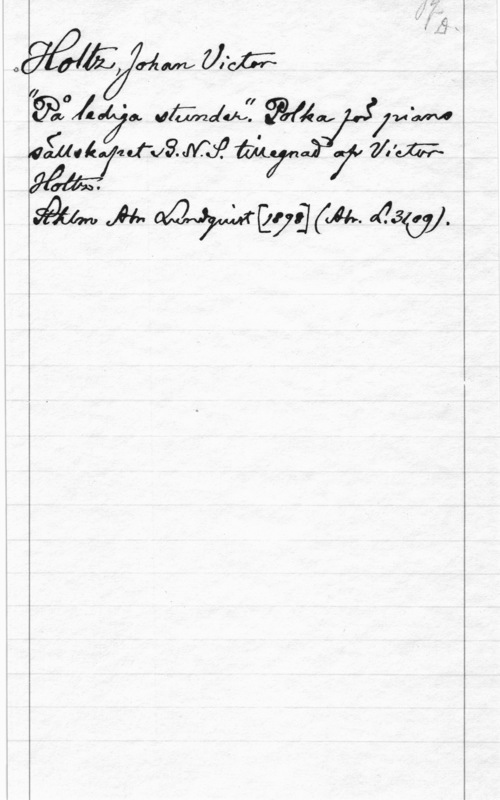 Holtz, Johan Victor
"På lediga stunder". Polka för piano
sällskapet B.N.S. tillegnad af Victor
Holtz.
Sthlm Abr Lundquist [1898] (Abr. L. 3109).